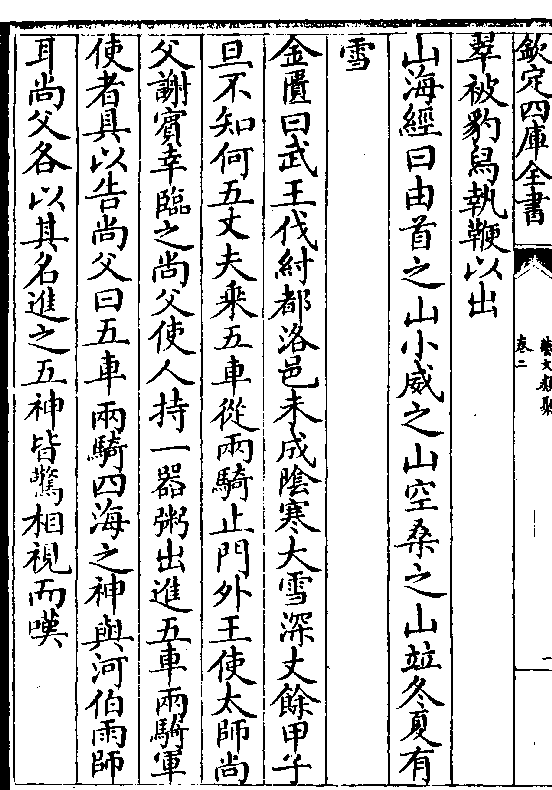 欽定四庫全書
藝文類聚
卷二
翠被豹舄執鞭以出
山海經曰由首之山小威之山空桑之山竝冬夏有
雪
金匱曰武王伐紂都洛邑未成陰寒大雪深丈餘甲子
旦不知何五丈夫乘五車從兩騎止門外王使太師尚
父謝賓幸臨之尚父使人持一器粥出進五車兩騎軍
使者具以告尚父曰五車兩騎四海之神與河伯雨師
耳尚父各以其名進之五神皆驚相視而嘆